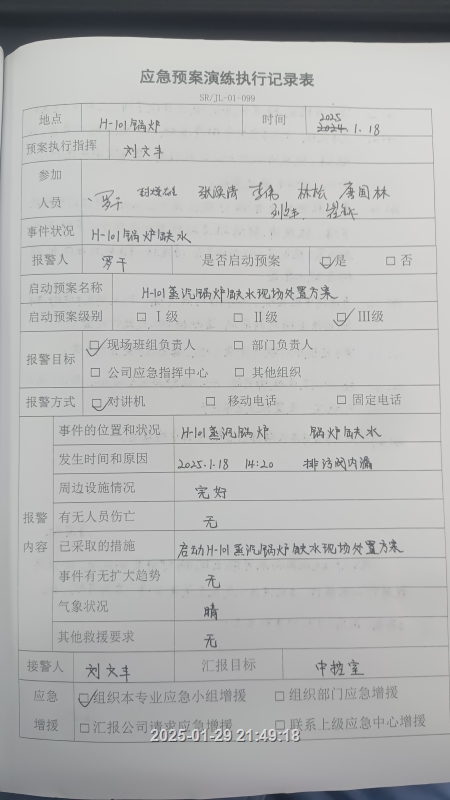 应急预案演练执行记录表
SR/JL-01-099
地点 H-101锅炉 时间 2025 2024.1.18
预案执行指挥 刘文丰
参加人员 罗干 张溪涛 李伟 林松 唐国林
事件状况 H-101锅炉缺水
报警人 罗干 是否启动预案 ☑是 □否
启动预案名称 H-101蒸汽锅炉缺水现场处置方案
启动预案级别 □Ⅰ级 □Ⅱ级 ☑Ⅲ级
报警目标 ☑现场班组负责人 □部门负责人
□公司应急指挥中心 □其他组织
报警方式 ☑对讲机 □移动电话 □固定电话
报警内容 事件的位置和状况 H-101蒸汽锅炉 锅炉缺水
发生时间和原因 2025.1.18 14:20 排污阀内漏
周边设施情况 完好
有无人员伤亡 无
已采取的措施 启动H-101蒸汽锅炉缺水现场处置方案
事件有无扩大趋势 无
气象状况 晴
其他救援要求 无
接警人 刘文丰 汇报目标 中控室
应急增援 ☑组织本专业应急小组增援 □组织部门应急增援
□汇报公司请求应急增援 □联系上级应急中心增援
2025-01-29 21:49:18